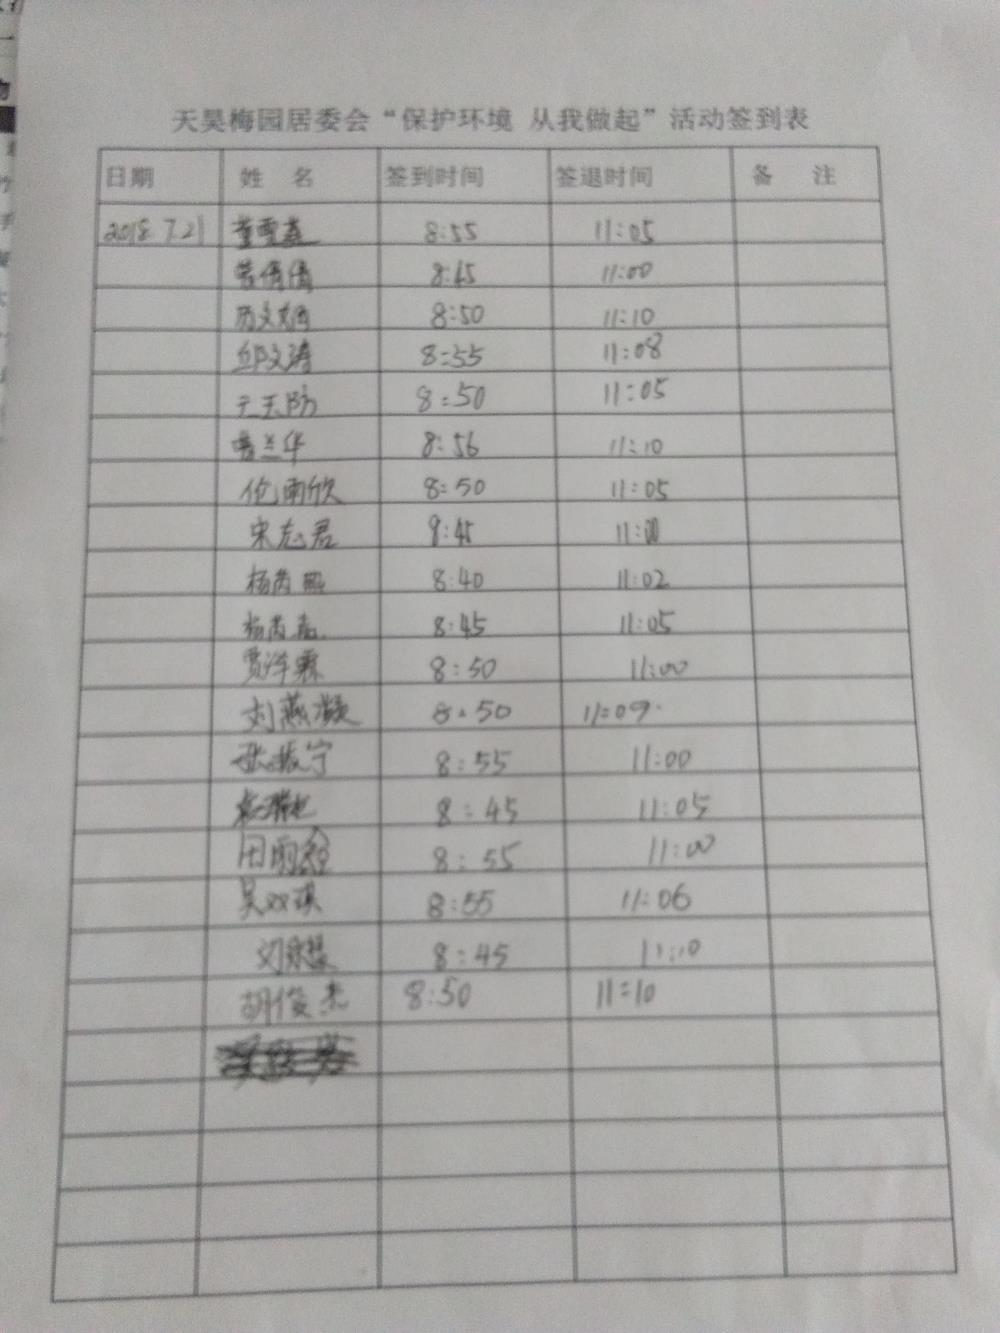 天昊梅园居委会“保护环境 从我做起”活动签到表
日期 姓 名 签到时间 签退时间 备 注
2018.7.21 董雪鑫 8:55 11:05
倩倩 8:45 11:00
8:50 11:10
邱文涛 8:55 11:08
于玉防 8:50 11:05
曹兰华 8:56 11:10
伦雨欣 8:50 11:05
宋志君 8:45 11:00
杨芮熙 8:40 11:02
杨芮嘉 8:45 11:05
贾泽霖 8:50 11:00
刘燕凝 8:50 11:09
张振宁 8:55 11:00
8:45 11:05
田雨鑫 8:55 11:00
吴双琪 8:55 11:06
刘 8:45 11:10
胡俊杰 8:50 11:10